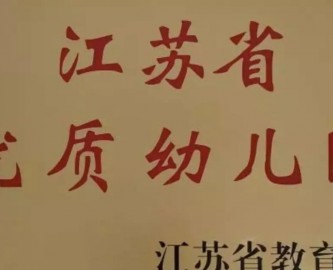 江苏省
优质幼儿园
江苏省教育